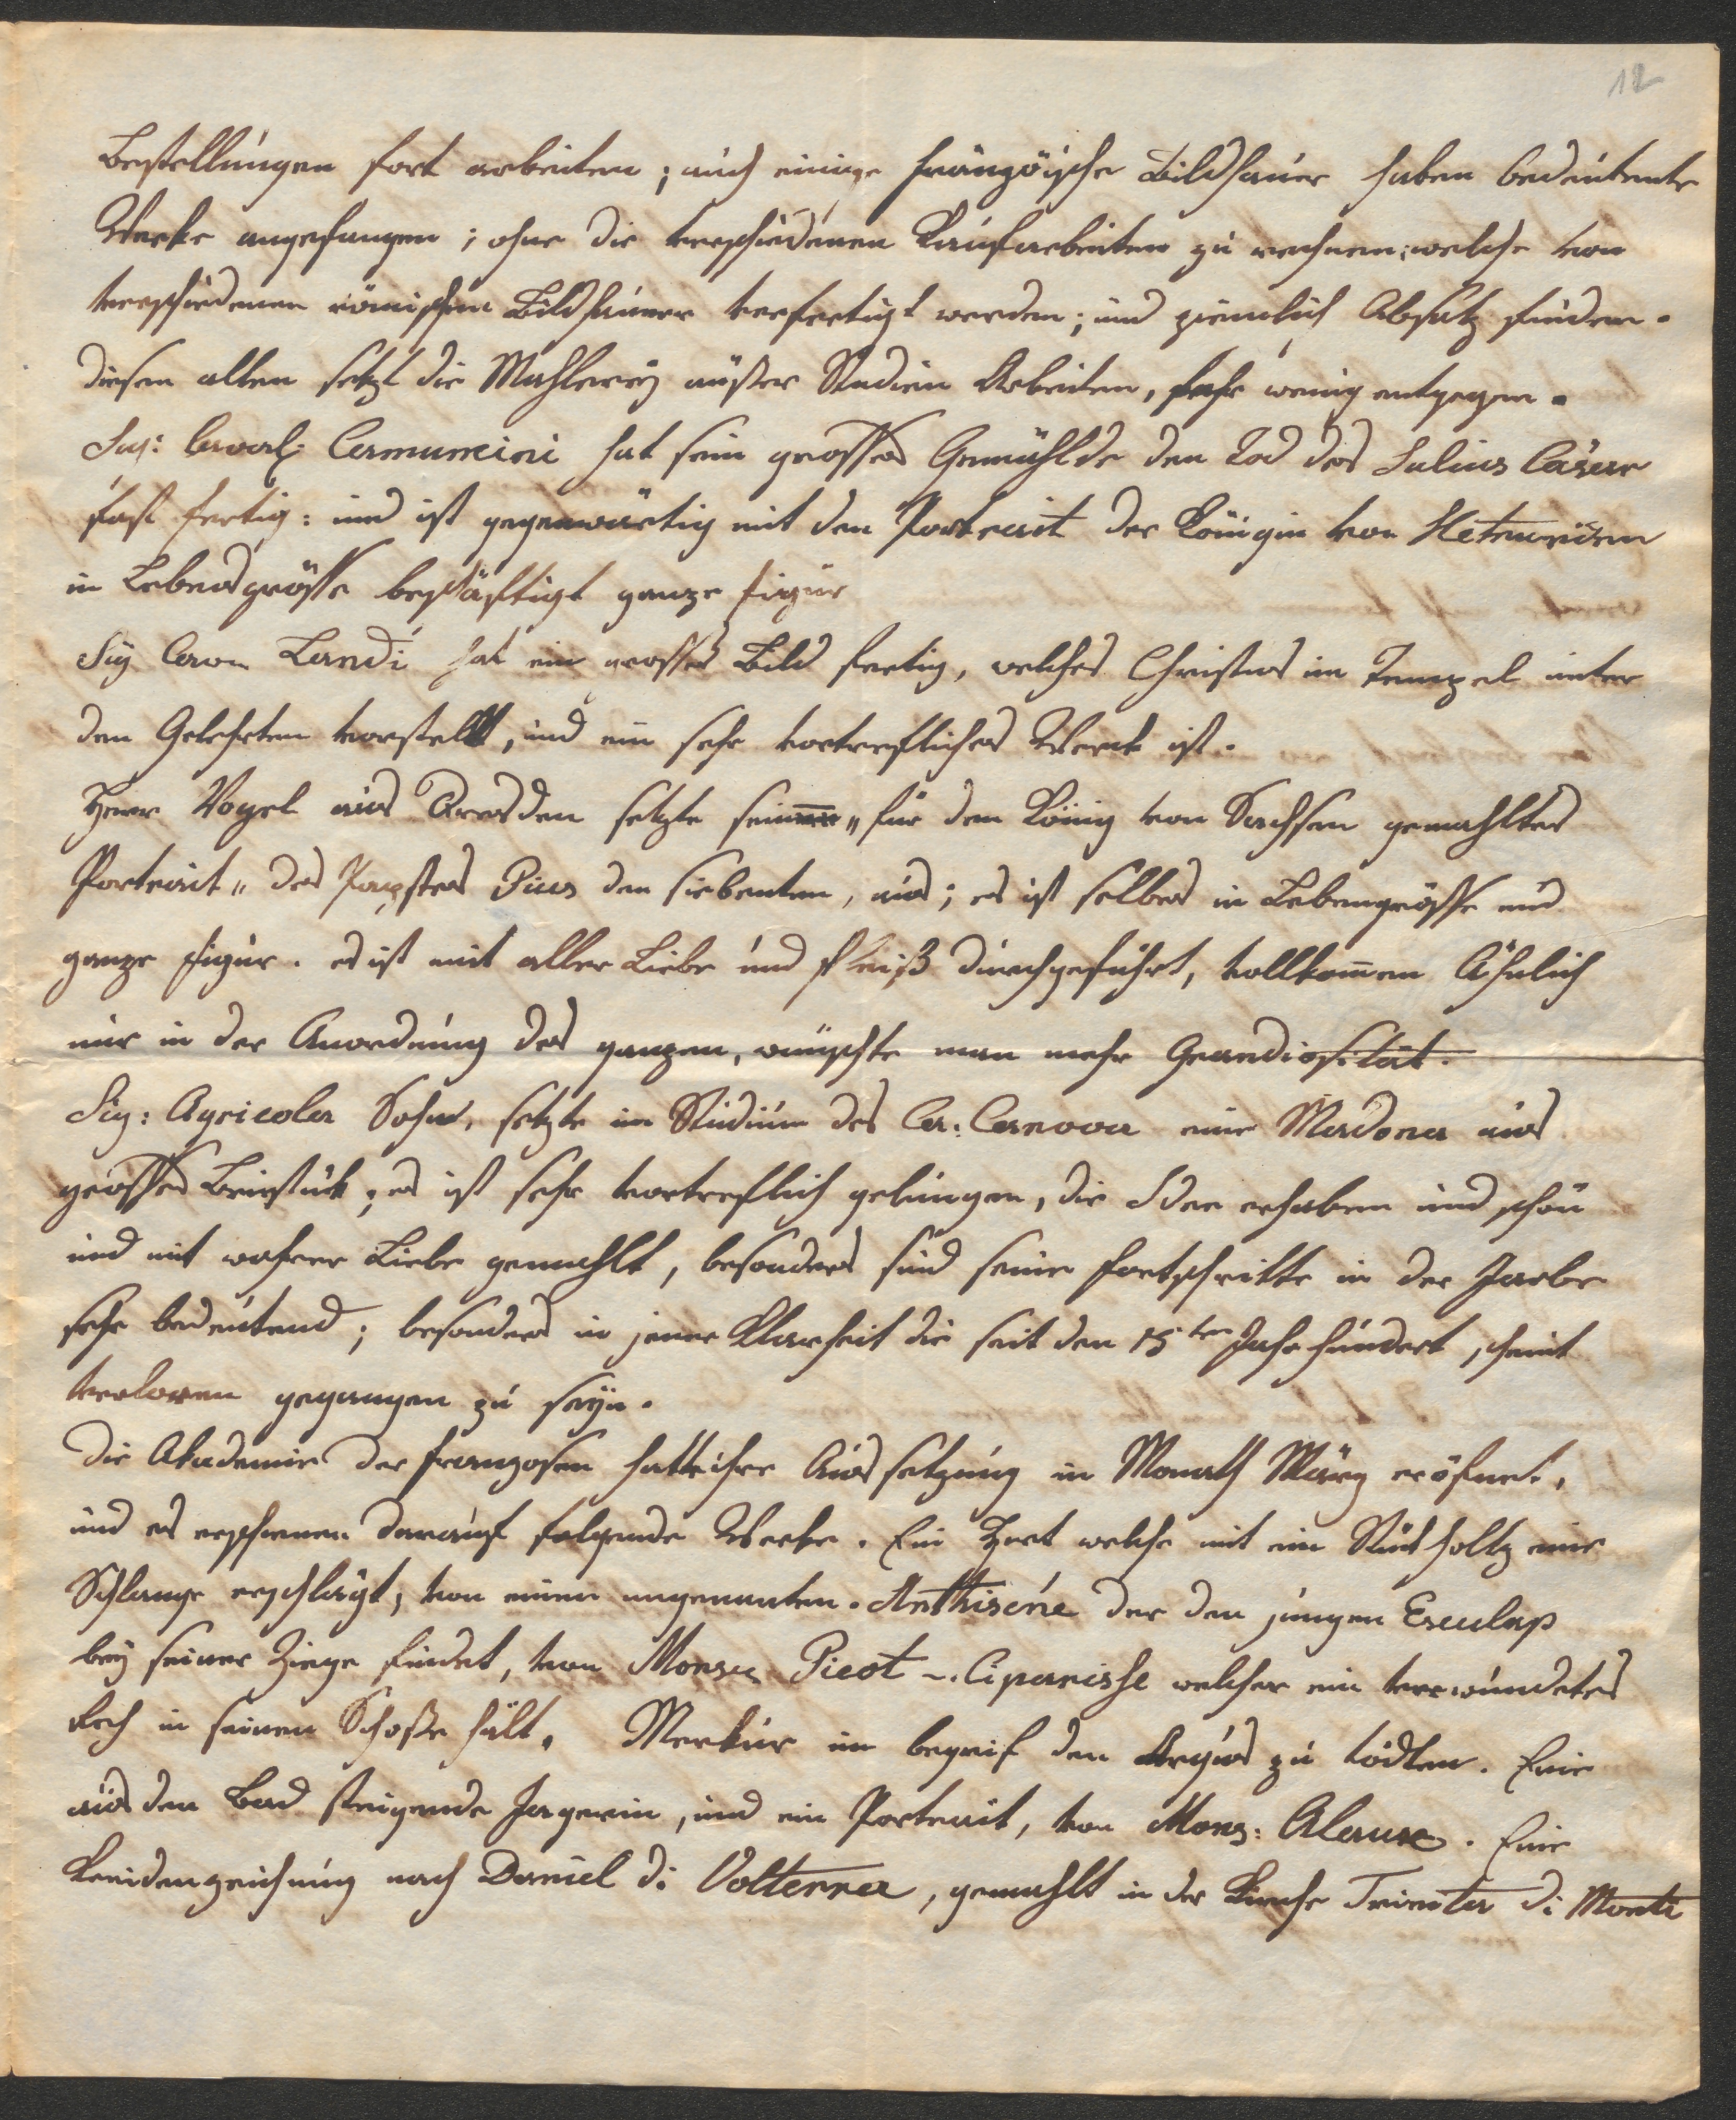 12
Bestellungen fort arbeiten; auch einige französche Bildhauer haben bedeutente
Werke angefangen; ohne die verschiedenen Kaufarbeiten zu rechnen: welche von
verschiedenen römischen Bildhauer verfertigt werden; und ziemlich Absatz finden.
diesen allen setzt die Mahlerey außer Studien Arbeiten, sehr wenig entgegen.
Sig: Caval: Camuncini hat sein grosses Gemählde den Tod des Julius Cäsar
fast fertig: und ist gegenwärtig mit den Portrait der Königin von Hetrurien
in Lebensgrösse beschäftigt ganze figur
Sig Cav. Landi hat ein grosses Bild fertig, welches Christus im Tempel unter
den Gelehrten vorstellt, und ein sehr vortrefliches Werck ist.
Herr Vogel aus Dresden setzte sein „für dem König von Sachsen gemahltes
Portrait„ des Papstes Pius den siebenten, aus; es ist selbes in Lebengrösse und
ganze figur. es ist mit aller Liebe und fleiß durchgeführt, vollkom̅en Ähnlich
nur in der Anordnung des ganzen, wünschte man mehr Grandiosität.
Sig: Agricola Sohn, setzte im Studium des Ca: Canova eine Madona aus
grosses Bruststük; es ist sehr vortreflich gelungen, die Idee erhaben und schön
und mit wahrer Liebe gemahlt, besonders sind seine fortschritte in der Farbe
sehr bedeutend; besonders in jener Klarheit die seit den 15ten Jahrhundert, scheint
verloren gegangen zu seyn.
Die Akademie der franzosen hatte ihre Aussetzung in Monath März eröfnet,
und es erschienen darauf folgende Werke. Ein Hirt welche mit ein Stük holtz eine
Schlange erschlägt, von einen ungenanten. Anthisène der den jungen Esculap
bey seiner Ziege findet, von Monsu Picot -. Ciparisse welcher ein verwundetes
Reh in seinen Schoße hält. Merkur im begrif den Argus zu tödten. Eine
aus den Bad steigende Jagerin, und ein Portrait, von Mons: Alaux. Eine
Kreidenzeichnung nach Daniel di Volterra, gemahlt in der Kirche Trinita di Monti